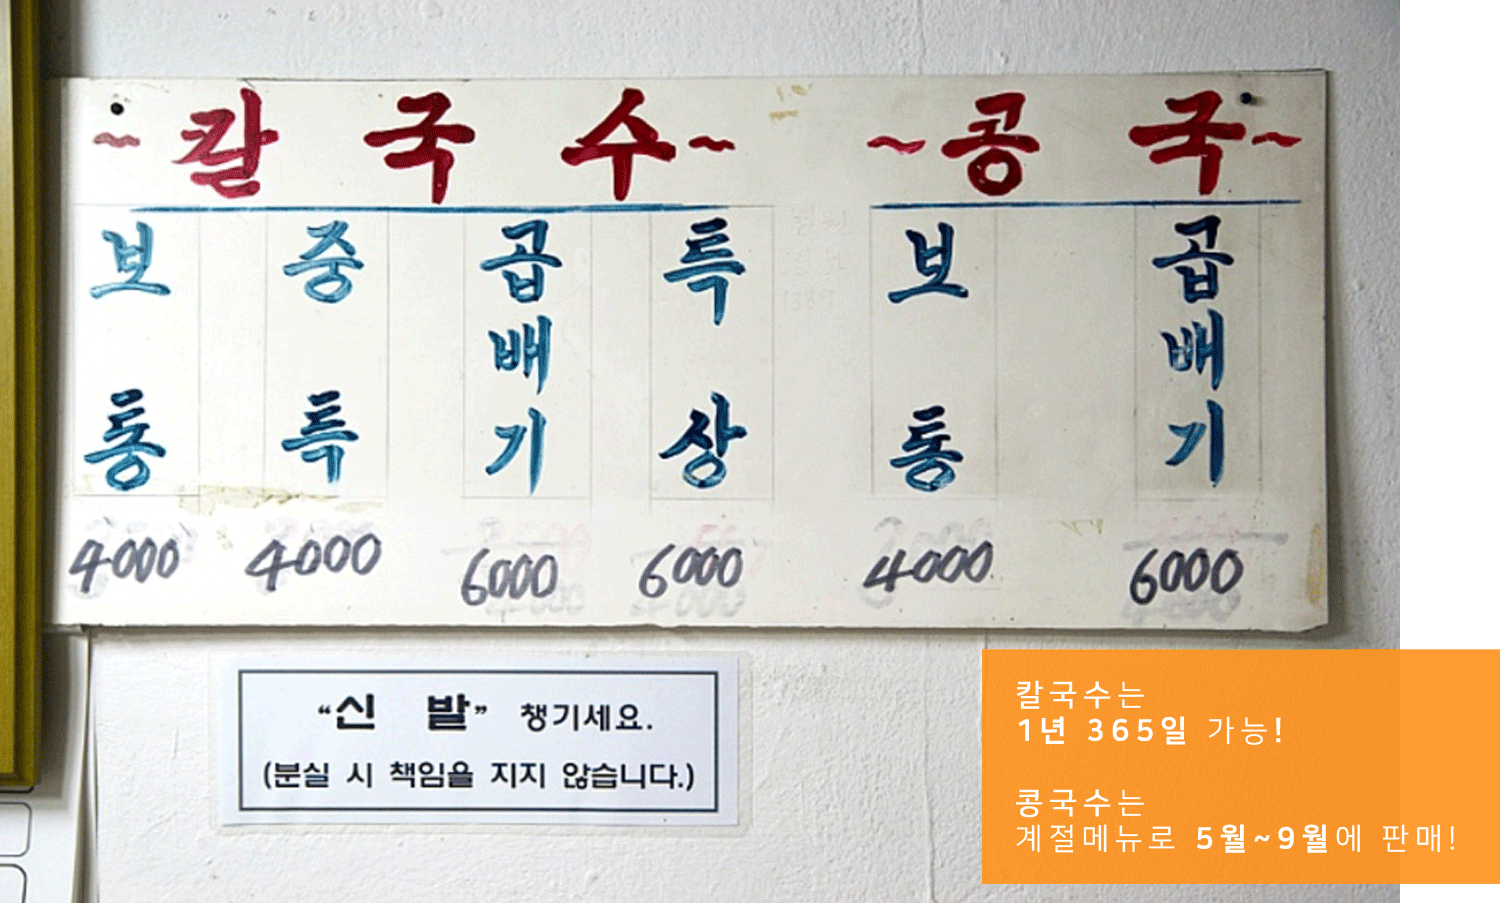 ~칼국수~ ~콩국~
보통 중특 곱배기 특상 보통 곱배기
4000 4000 6000 6000 4000 6000
“신 발” 챙기세요.
(분실 시 책임을 지지 않습니다.)
칼국수는
1년 365일 가능!
콩국수는
계절메뉴로 5월~9월에 판매!